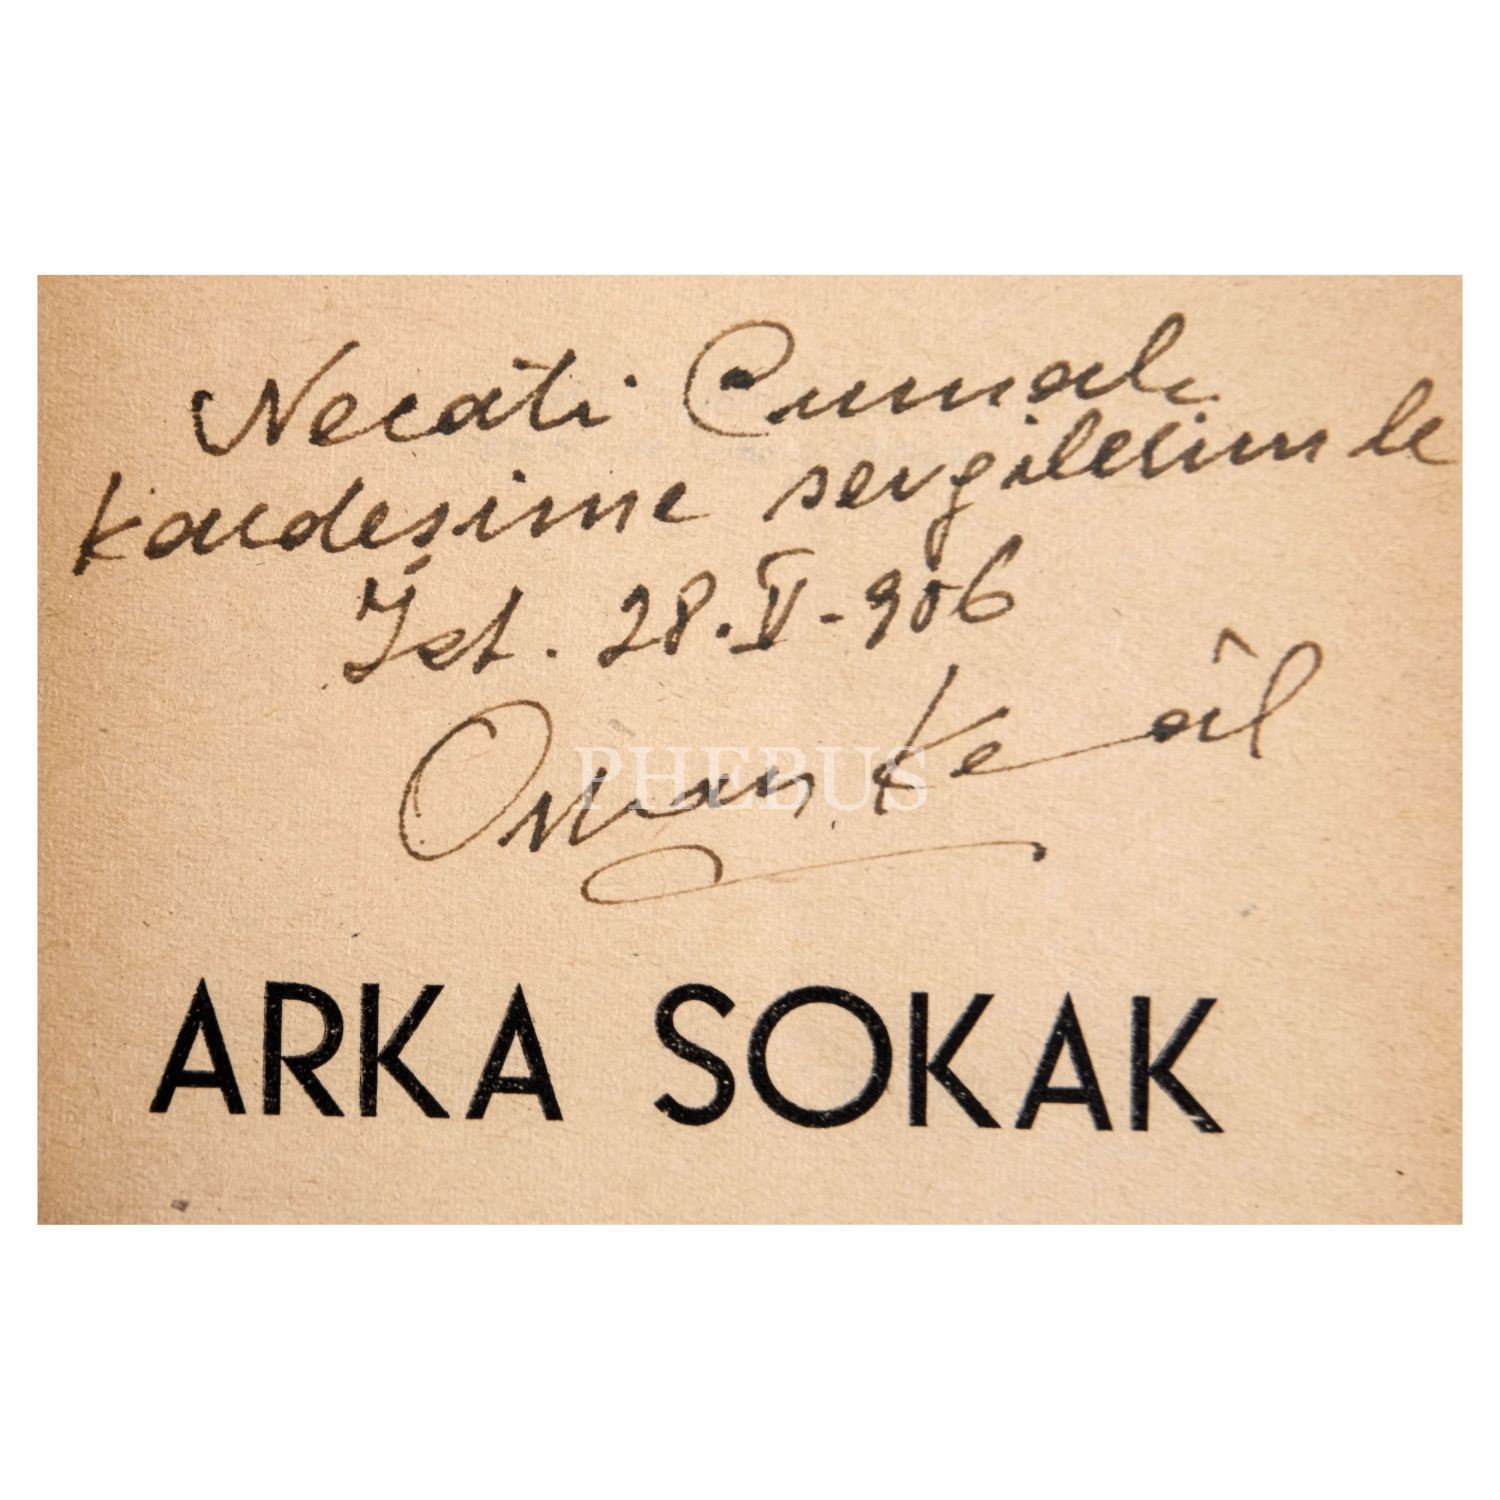 Necati Cumalı
kardeşime sevgilerimle
İst. 28.V-956
Orhan Kemâl
PHEBUS
ARKA SOKAK